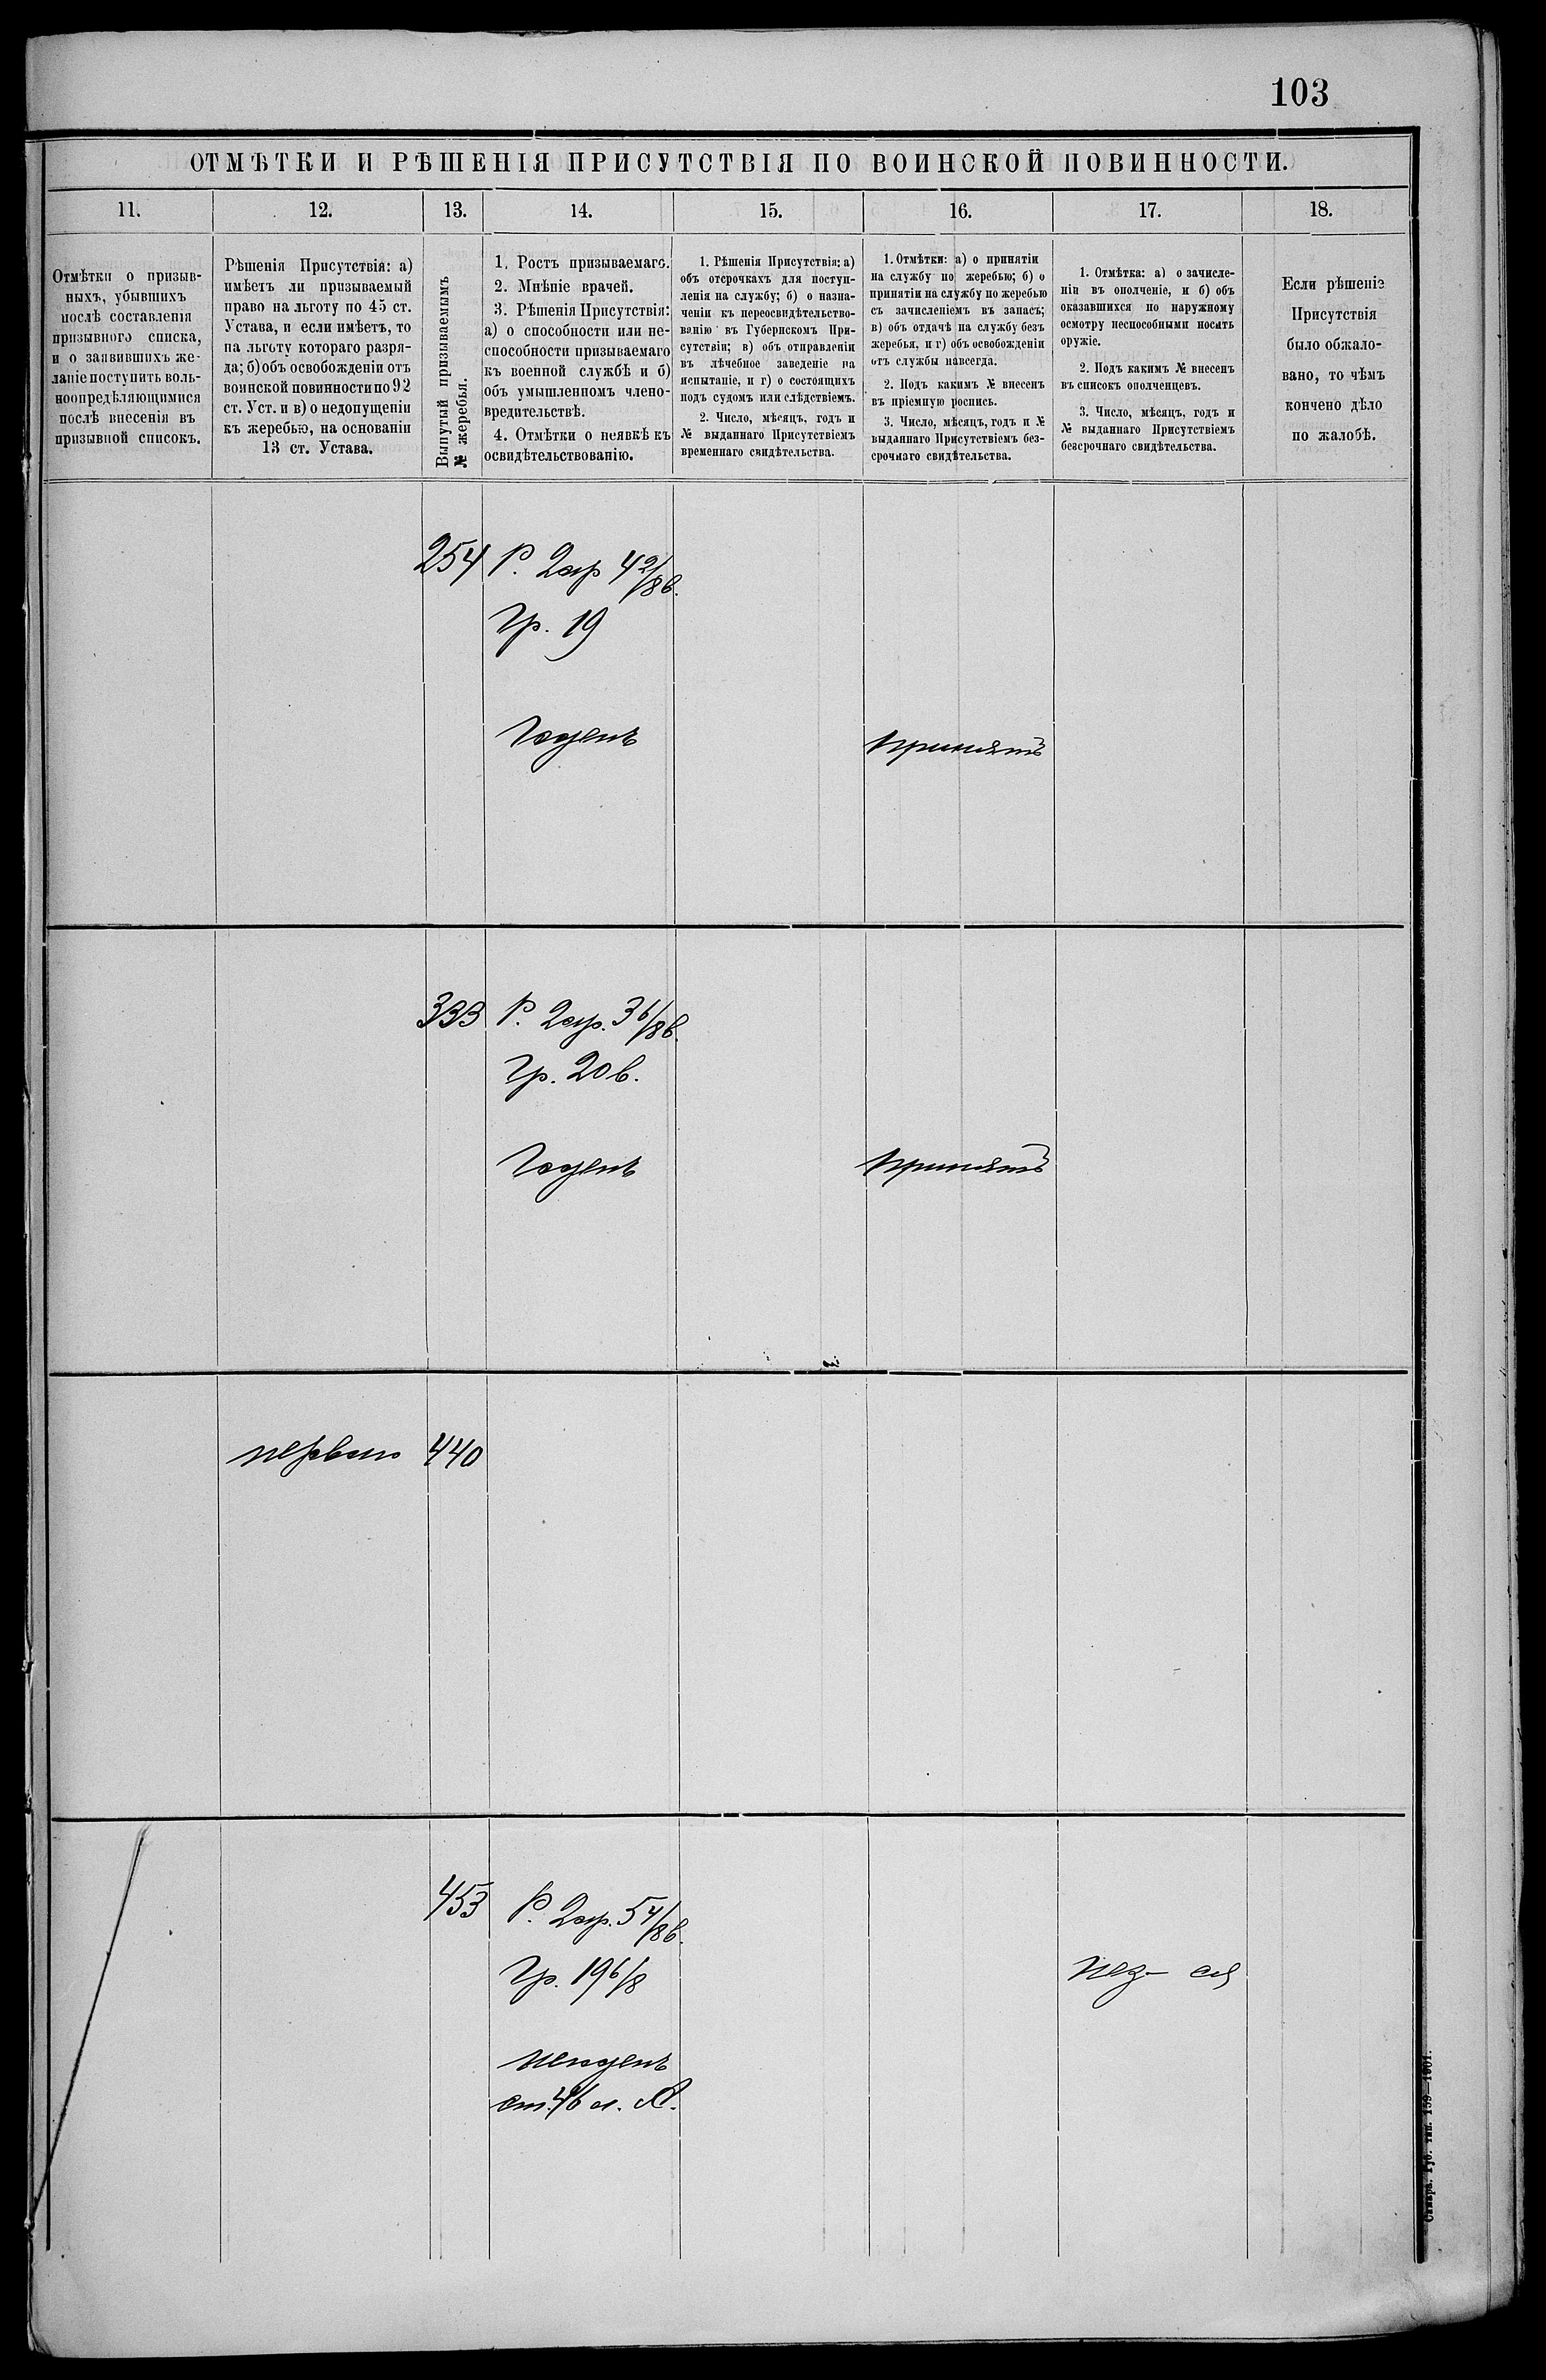 103
ОТМѢТКИ И РѢШЕНІЯ ПРИСУТСТВІЯ ПО ВОИНСКОЙ ПОВИННОСТИ.
11.
12.
13.
14.
15.
16.
17.
18.
Отмѣтки о призыв-
ныхъ, убывшихъ
послѣ составленія
призывного списка,
и о заявившихъ же-
ланіе поступить воль-
ноопредѣляющимися
послѣ внесенія въ
призывной списокъ.
Рѣшенія Присутствія: а)
имѣетъ ли призываемый
право на льготу по 45 ст.
Устава, и если имѣетъ, то
на льготу котораго разря-
да; б) объ освобожденіи отъ
воинской повинности по 92
ст. Уст. и в) о недопущеніи
къ жеребью, на основаніи
13 ст. Устава.
Вынутый призываемымъ
№ жеребья.
1. Ростъ призываемаго.
2. Мнѣніе врачей.
3. Рѣшенія Присутствія:
а) о способности или не-
способности призываемаго
къ военной службѣ и б)
объ умышленномъ члено-
вредительствѣ.
4. Отмѣтки о неявкѣ къ
освидѣтельствованію.
1. Рѣшенія Присутствія: а)
объ отсрочкахъ для поступ-
ленія на службу; б) о назна-
ченіи къ переосвидѣтельство-
ванію въ Губернскомъ При-
сутствіи; в) объ отправленіи
въ лѣчебное заведеніе на
испытаніе, и г) о состоящихъ
подъ судомъ или слѣдствіемъ.
2. Число, мѣсяцъ, годъ и
№ выданнаго Присутствіемъ
временнаго свидѣтельства.
1. Отмѣтки: а) о принятіи
на службу по жеребью; б) о
принятіи на службу по жеребью
съ зачисленіемъ въ запасъ;
в) объ отдачѣ на службу безъ
жеребья, и г) объ освобожденіи
отъ службы навсегда.
2. Подъ какимъ № внесенъ
въ пріемную роспись.
3. Число, мѣсяцъ, годъ и №
выданнаго Присутствіемъ без-
срочнаго свидѣтельства.
1. Отмѣтка: а) о зачисле-
ніи въ ополченіе, и б) объ
оказавшихся по наружному
осмотру неспособными носить
оружіе.
2. Подъ какимъ № внесенъ
въ списокъ ополченцевъ.
3. Число, мѣсяцъ, годъ и
№ выданнаго Присутствіемъ
безсрочнаго свидѣтельства.
Если рѣшеніе
Присутствія
было обжало-
вано, то чѣмъ
кончено дѣло
по жалобѣ.
254 Р. 2ар 4 2/8 в.
Гр. 19
Годенъ
Принятъ
333 Р. 2ар. 3 6/8 в.
Гр. 20 в.
Годенъ
Принятъ
440
453 Р. 2ар. 5 4/8 в.
Гр. 19 6/8
негоденъ
ст. 46 л. А.
Самара. Губ. тип. 159—1901.